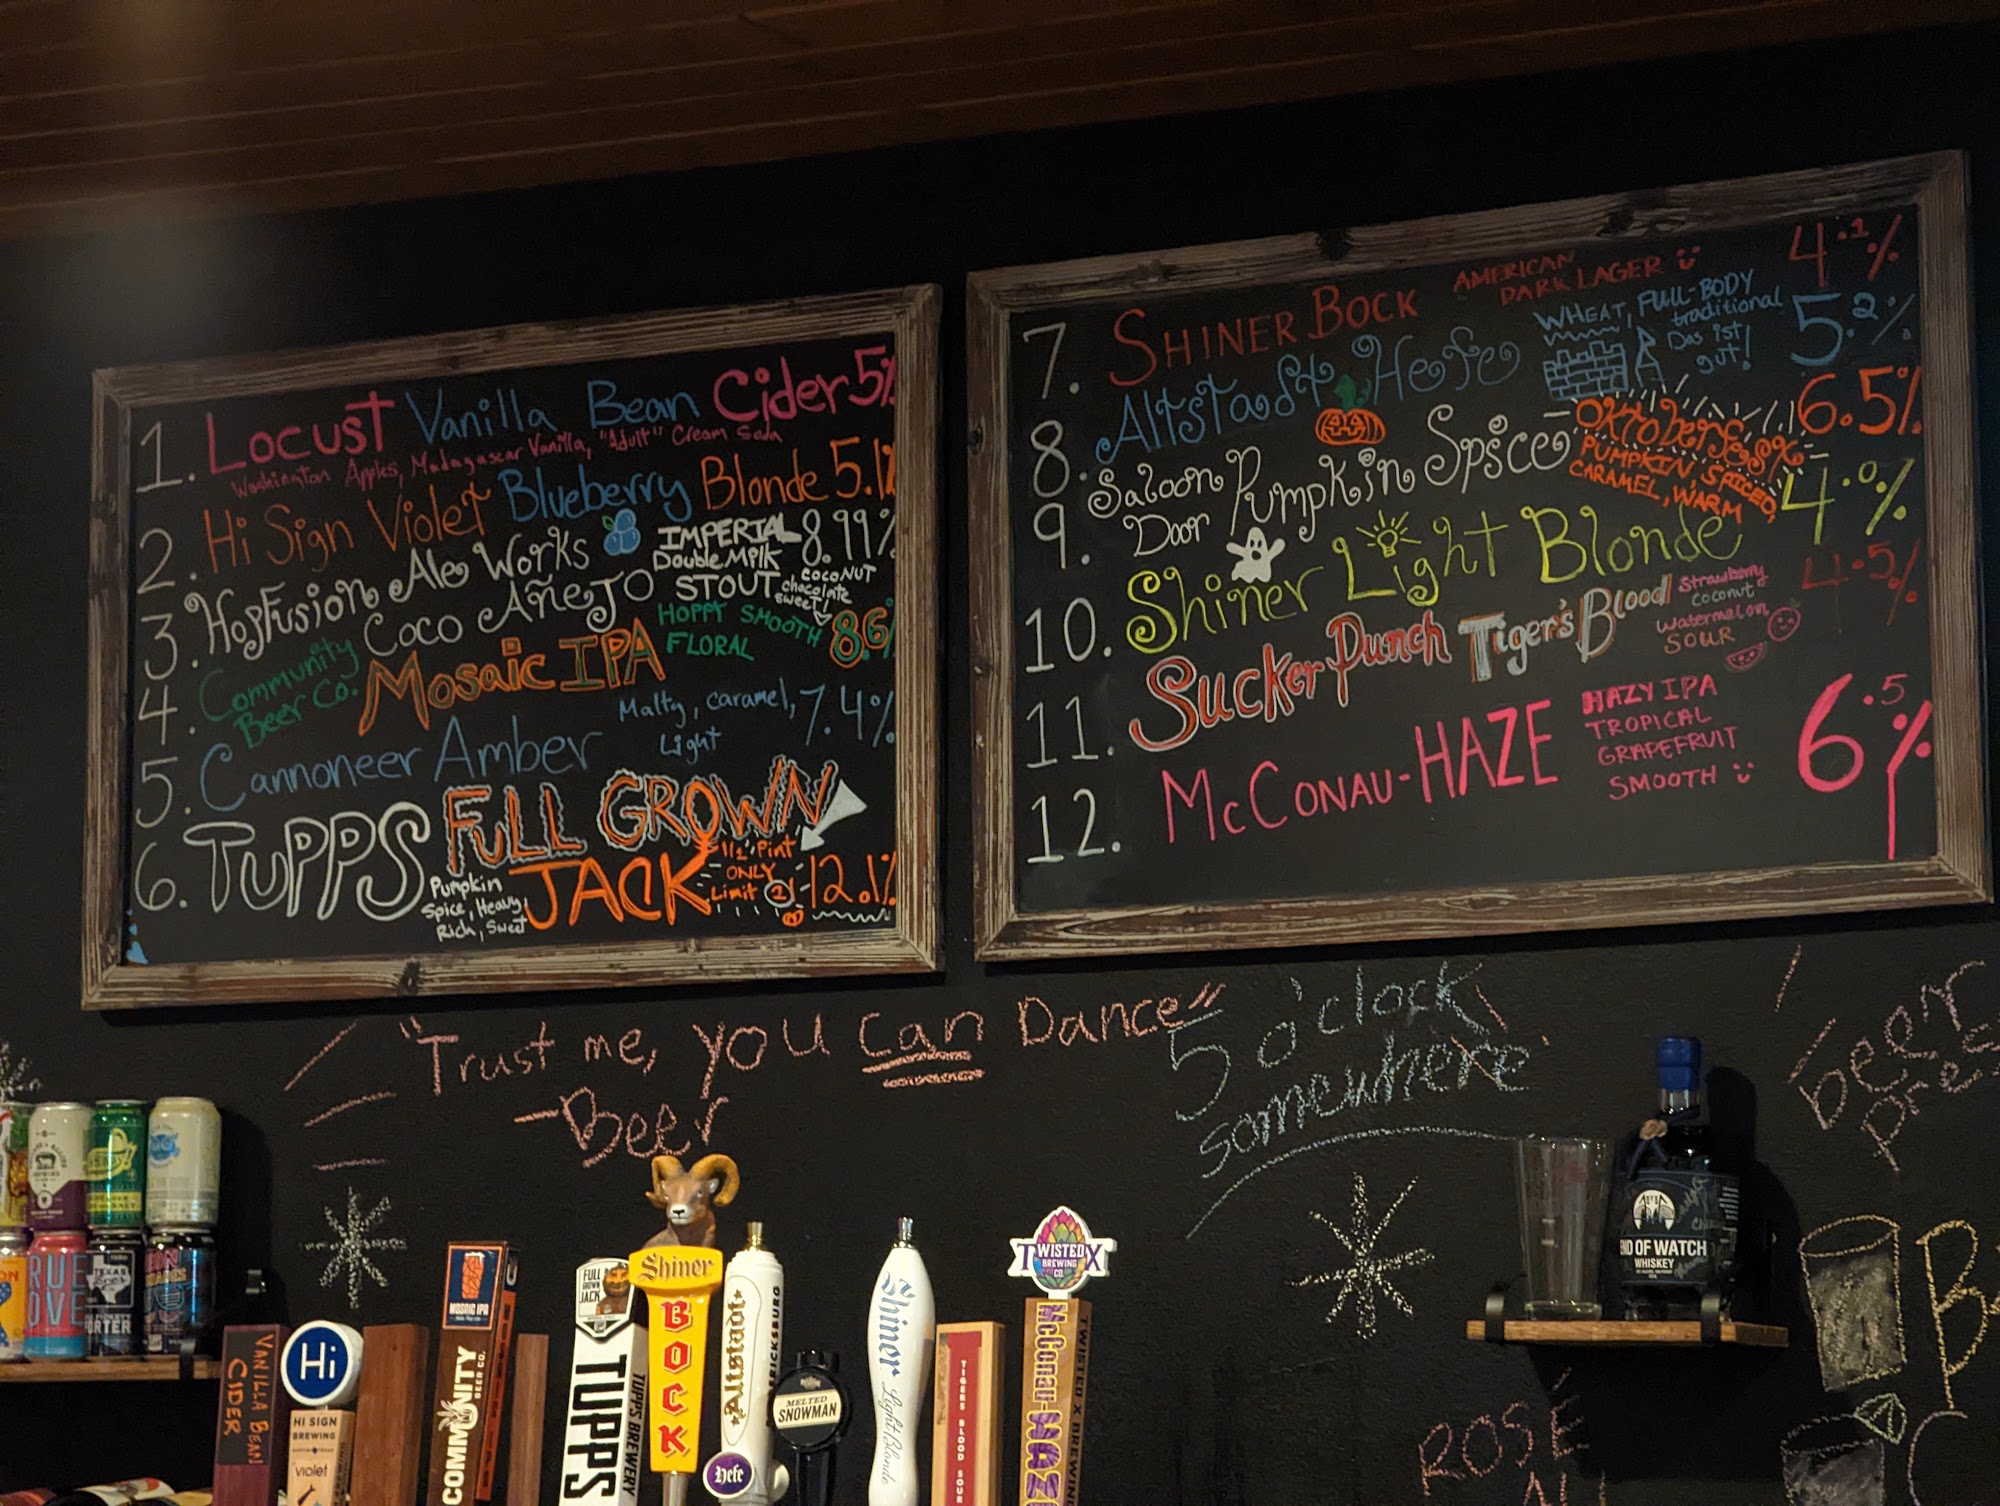 1. Locust Vanilla Bean Cider 5%
Washington Apples, Madagascar Vanilla, "Adult" Cream Soda
2. Hi Sign Violet Blueberry Blonde 5.1%
3. HopFusion Ale Works
Coco Añejo
IMPERIAL
Double Milk
STOUT
coconut
chocolate
sweet!
8.99%
4. Community
Beer Co.
Mosaic IPA
HOPPY SMOOTH
FLORAL
8.6%
5. Cannoneer Amber
Malty, caramel,
Light
7.4%
6. TUPPS FULL GROWN
JACK
Pumpkin
Spice, Heavy,
Rich, Sweet
1/2 Pint
ONLY
Limit 2!
12.1%
7. SHINER BOCK
AMERICAN
DARK LAGER
4.1%
8. Altstadt Hefe
WHEAT, FULL-BODY
traditional
Das ist
gut!
5.2%
9. Saloon
Door
Pumpkin Spice
Oktoberfest
PUMPKIN SPICED,
CARAMEL, WARM
6.5%
10. Shiner Light Blonde 4.0%
11. Sucker Punch Tiger's Blood
Strawberry
coconut
watermelon
SOUR
4.5%
12. McCONAU-HAZE
HAZY IPA
TROPICAL
GRAPEFRUIT
SMOOTH
6.5%
"Trust me, you can Dance"
-Beer
5 o'clock
somewhere
beer
END OF WATCH
WHISKEY
ROSÉ
TEXAS
PORTER
VANILLA BEAN
CIDER
Hi
HI SIGN
BREWING
Violet
MOSAIC IPA
COMMUNITY
BEER CO.
FULL
GROWN
JACK
TUPPS
TUPPS BREWERY
Shiner
BOCK
Altstadt
Hefe
MELTED
SNOWMAN
Shiner
Light Blonde
TIGERS BLOOD SOUR
TWISTED X
BREWING
CO.
McCONAU-HAZE